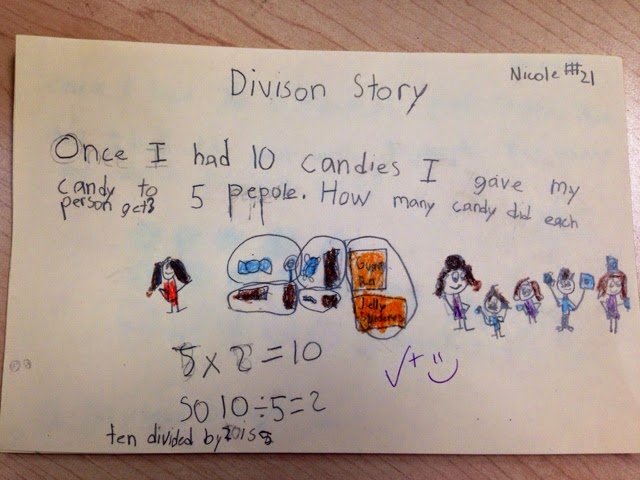 Nicole #21
Divison Story
Once I had 10 candies I gave my
candy to 5 pepole. How many candy did each
person get?
Gum
Jelly
5 x 2 = 10
so 10 ÷ 5 = 2
ten divided by